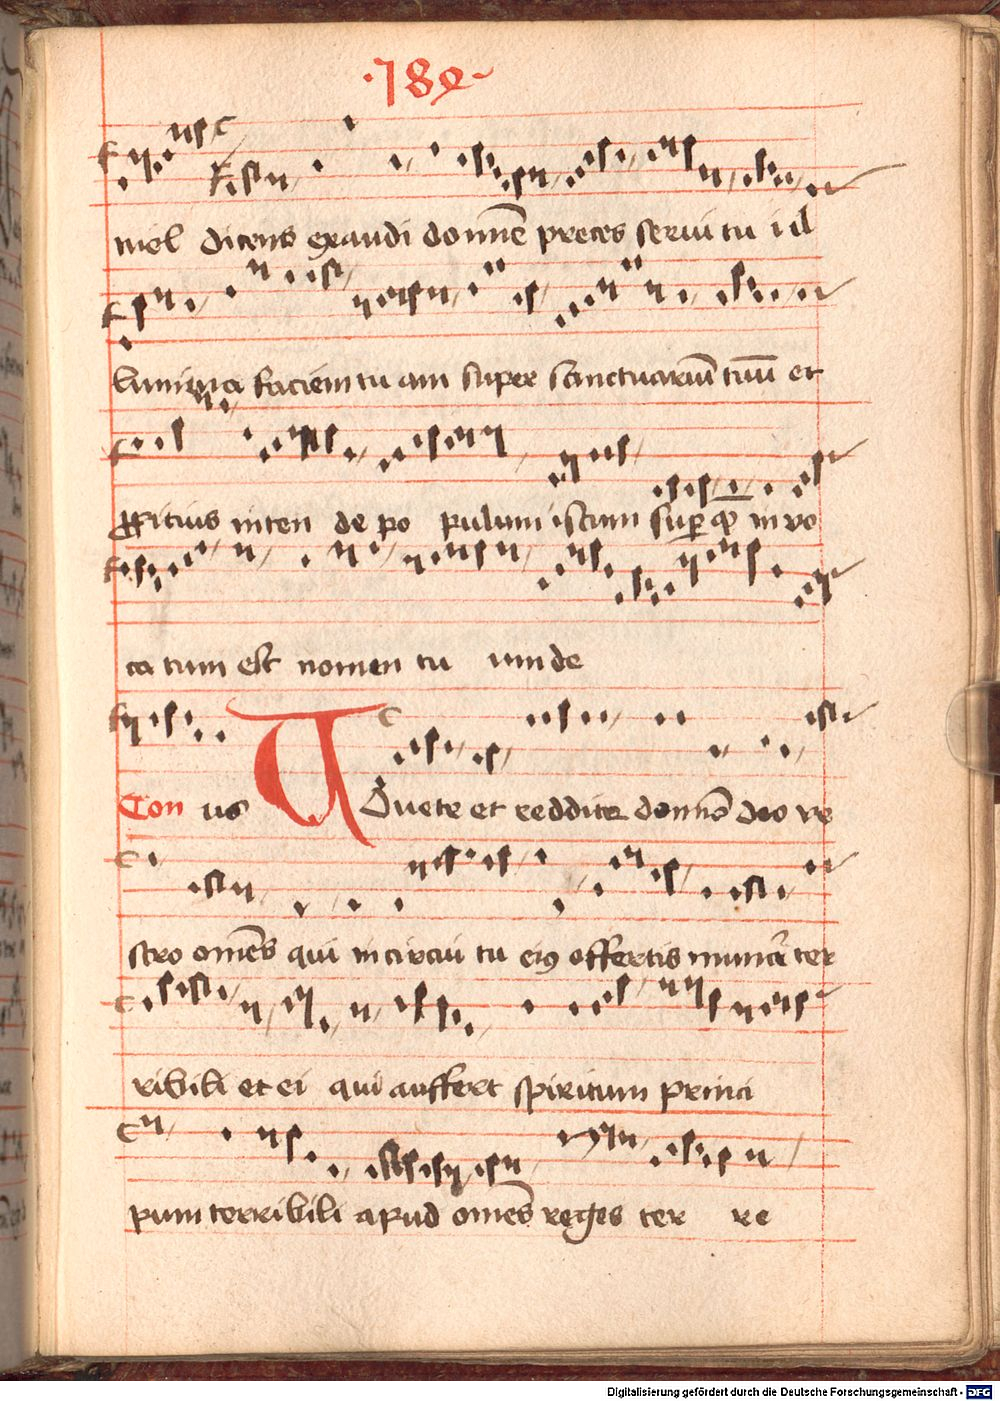 ·189·
niel dicens exaudi domne preces serui tui il
lumina faciem tu am super sanctuariū tuū et
ppitius inten de po pulum istum sup qͦ in vo
ca tum est nomen tu um de
Ton us Vouete et reddite domno deo ve
stro omes qui in circui tu eiꝰ offertis mun'a ter
ribili et ei qui auffert spiritum princi
pum terribili apud omes reges ter re
Digitalisierung gefördert durch die Deutsche Forschungsgemeinschaft - DFG